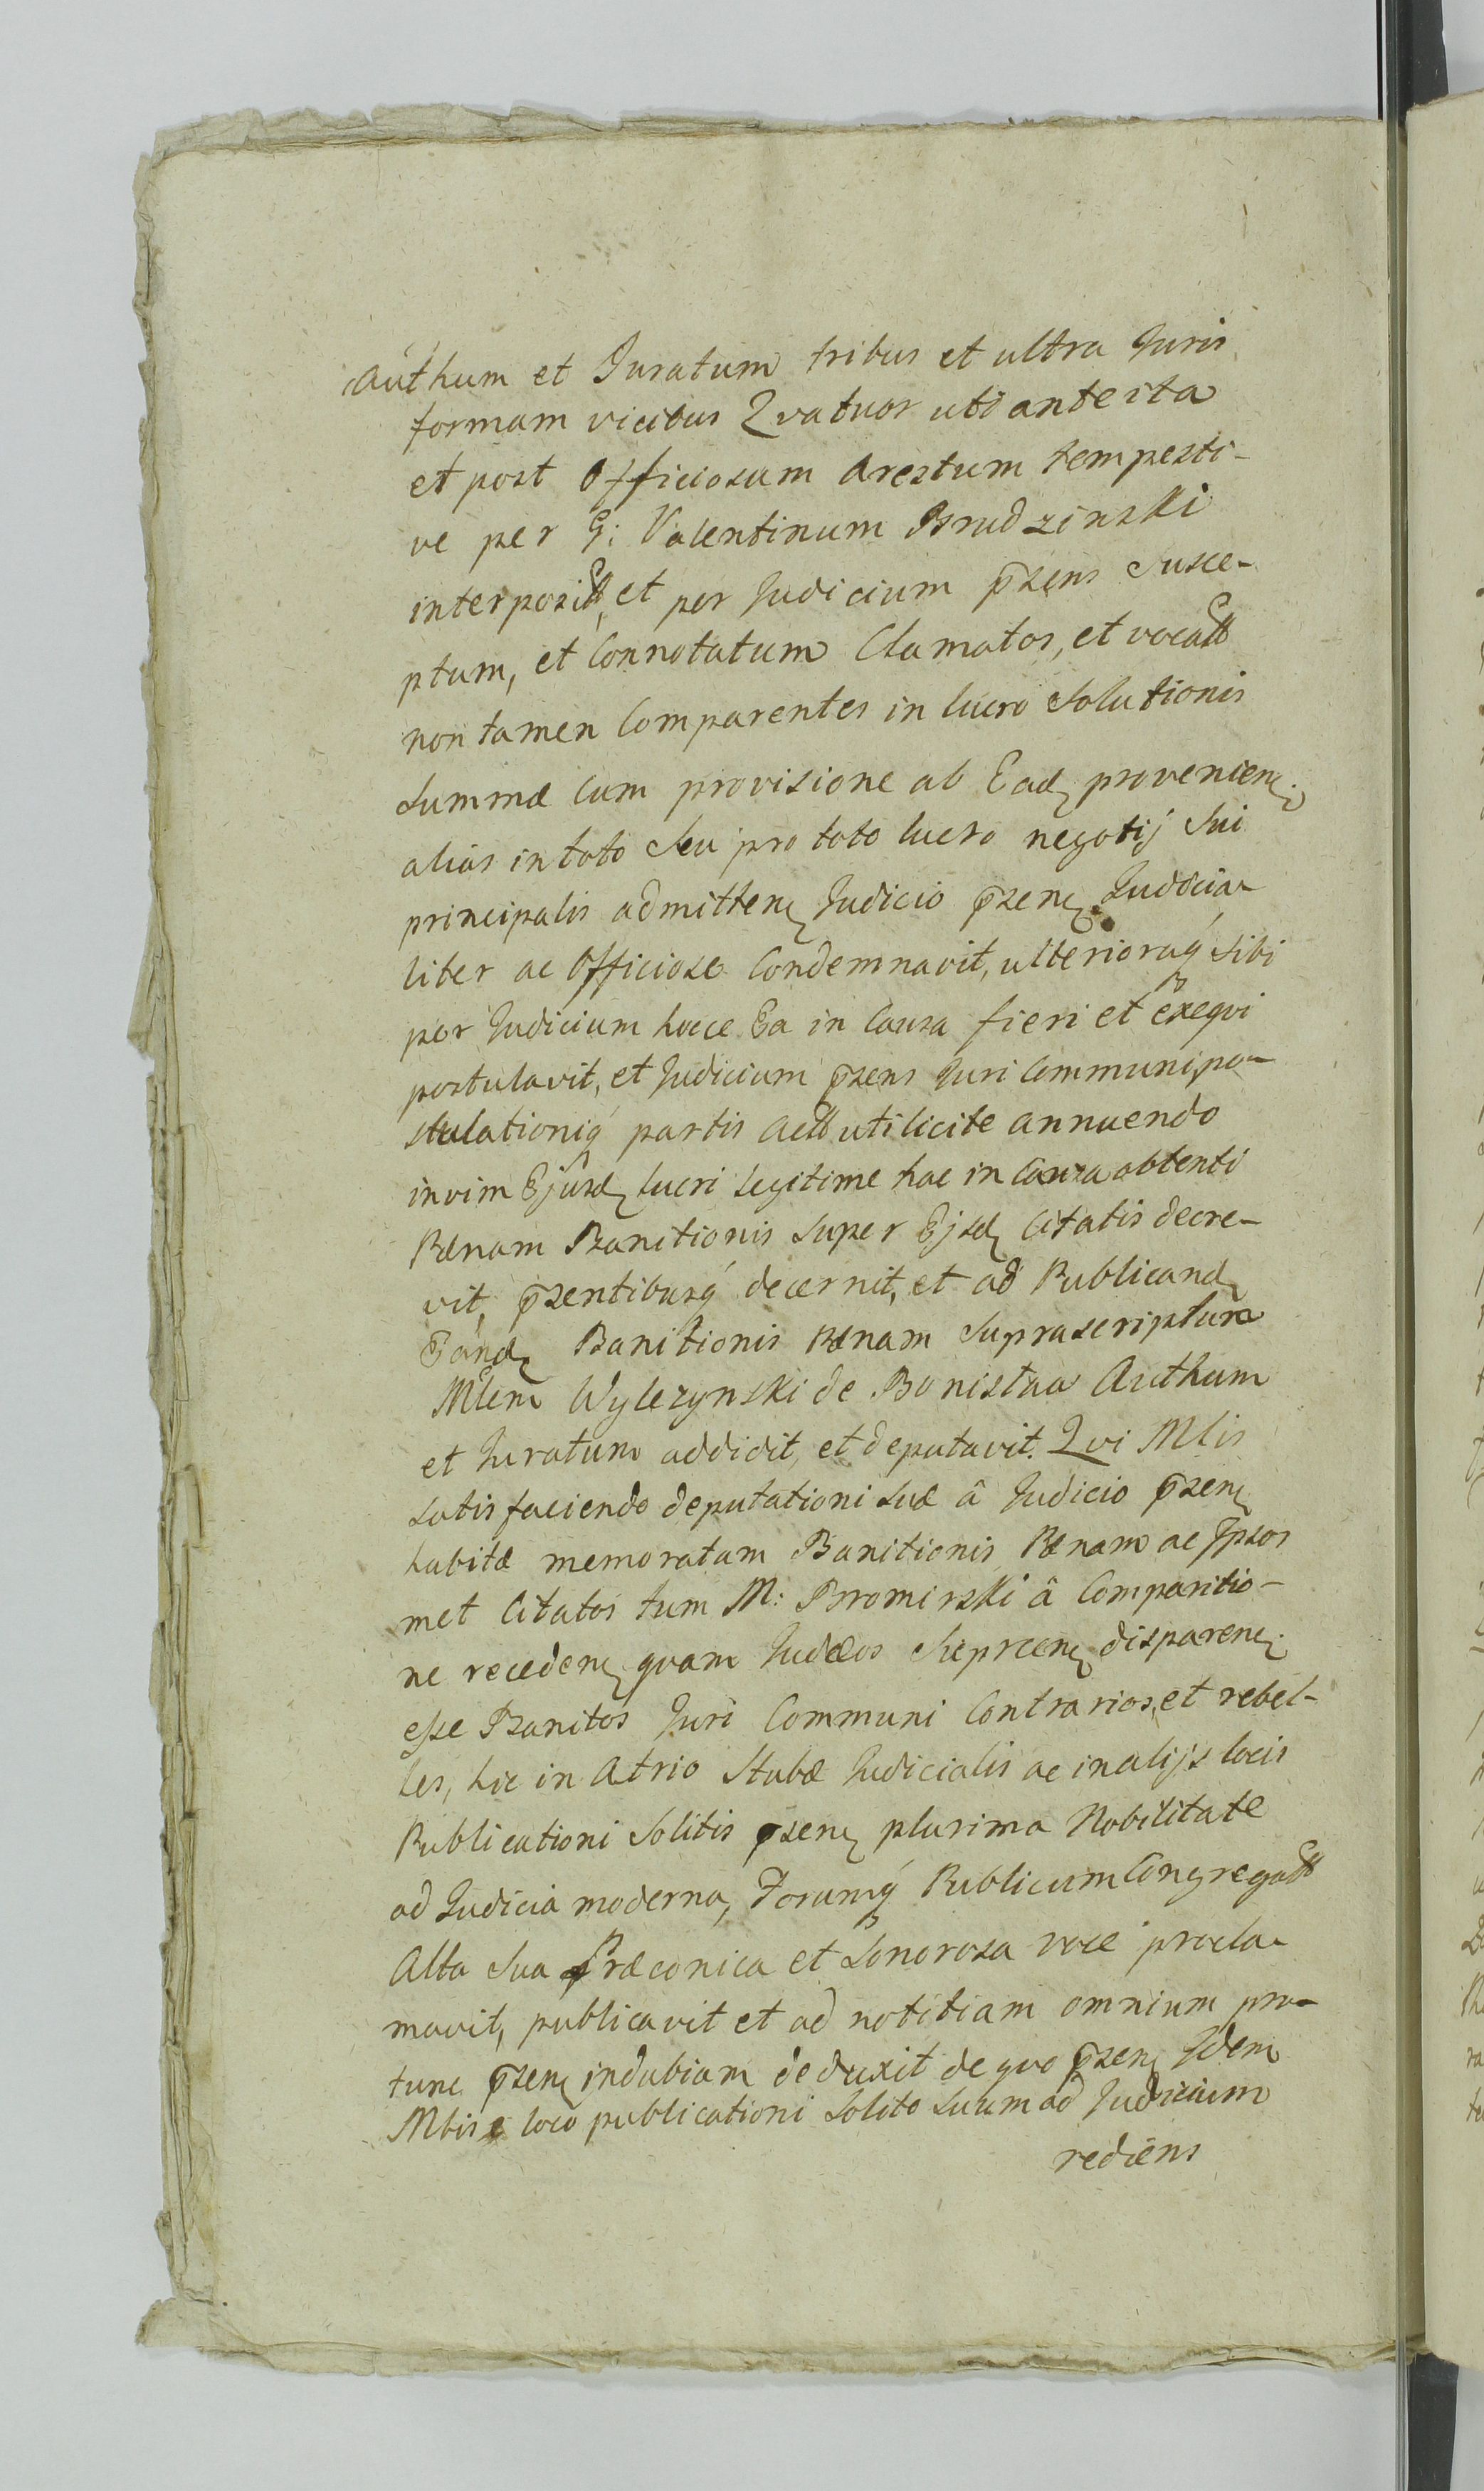 authum et Juratum tribus et ultra Juris
formam vicibus Qvatuor uti anteita
et post Officiosum arestum tempesti-
ve per G: Valentinum Brudzinski
interposittt, et per Judicium p̄sens susce-
ptum, et Connotatum Clamatos, et vocattt
non tamen Comparentes in lucro solutionis
summæ Cum provisione ab Eadę provenienę
alias in toto seu pro toto lucro negotij sui
principalis admittenę Judicio p̄senę Judicia-
liter ac Officiose Condemnavit, ulterioraq́ sibi
per Judicium hocce Ea in Causa fieri et exeqvi
postulavit, et Judicium p̄sens Juri Communi, po-
stulationiq́ partis acttt uti licite annuendo
in vim Ejusdę lucri legitime hac in Causa obtenti
Pænam Banitionis super Ejsdę Citatis decre-
vit, p̄sentibusq́ decernit, et ad Publicandę
Eandę Banitionis Pænam suprascriptum
Mlem Wylezynski de Bonistaw Authum
et Juratum addidit, et deputavit. Qvi Mlis
satis faciendo deputationi suæ â Judicio p̄senę
habitæ memoratam Banitionis Pænam ac Jpsos
met Citatos tum M: Bromirski â Comparitio-
ne recedenę qvam Judæos disparenę
esse Banitos Juri Communi Contrarios, et rebel-
les, hic in Atrio Stubæ Judicialis ac in alijs locis
Publicationi Solitis p̄senę plurima Nobilitate
ad Judicia moderna, Forumq́ Publicum Congregattt
Alta sua Præconica et Sonorosa voce procla-
mavit, publicavit et ad notitiam omnium pro-
tunc p̄senę indubiam deduxit de qvo p̄senę Jdem
Mlis e loco publicationi Solito suum ad Judicium
rediens